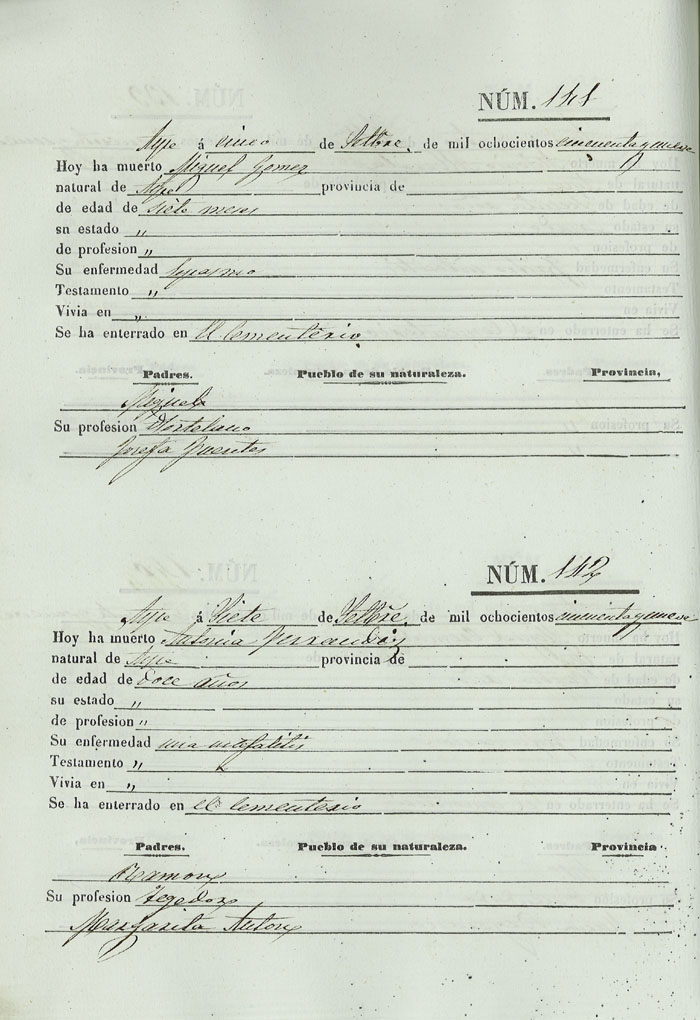 NÚM. 141
Aspe á cinco de Settbre. de mil ochocientos cincuenta y nueve
Hoy ha muerto Miguel Gomez
natural de Aspe provincia de
de edad de siete meses
su estado „
de profesion „
Su enfermedad Espasmo
Testamento „
Vivia en „
Se ha enterrado en El Cementerio
Padres. Pueblo de su naturaleza. Provincia,
Miguel
Su profesion Hortelano
Josefa Fuentes
NÚM. 142
Aspe á Siete de Settbre. de mil ochocientos cincuenta y nueve
Hoy ha muerto Antonia
natural de Aspe provincia de
de edad de doce años
su estado „
de profesion „
Su enfermedad una
Testamento „
Vivia en „
Se ha enterrado en el Cementerio
Padres. Pueblo de su naturaleza. Provincia
Ramon
Su profesion Tegedor
Margarita Anton